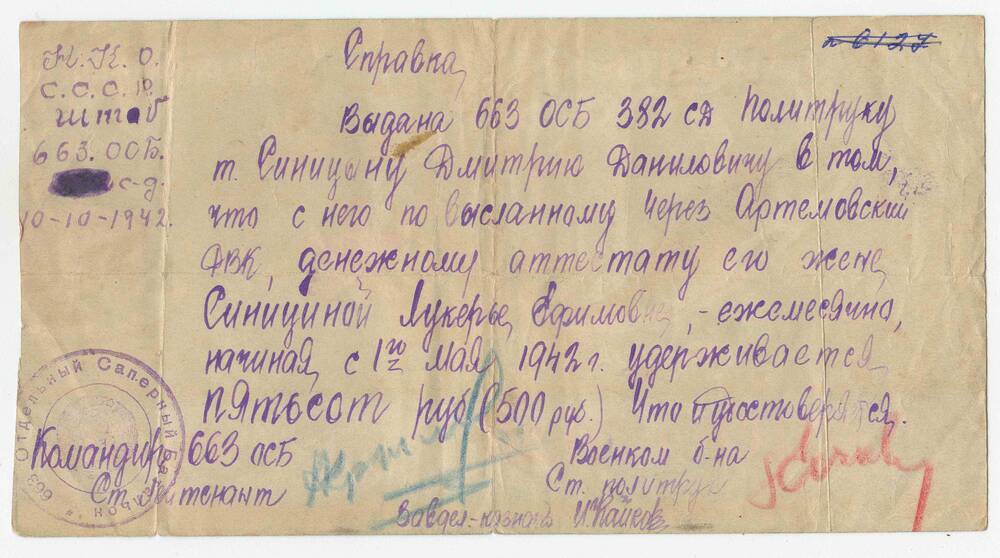 № 0127
Н.К.О.
С.С.С.Р.
штаб
663. ОСБ.
с-д.
10-10-1942.
Справка
Выдана 663 ОСБ 382 сд Политруку
т. Синицыну Дмитрию Даниловичу в том,
что с него по высланному через Артемовский
РВК, денежному аттестату его жене
Синициной Лукерье Ефимовне, - ежемесячно,
начиная с 1го мая 1942 г. удерживается
пятьсот руб (500 руб.) Что и удостоверяется.
Командир 663 ОСБ
Ст. лейтенант
Военком б-на
Ст. политрук
Отдельный Саперный Батальон 663